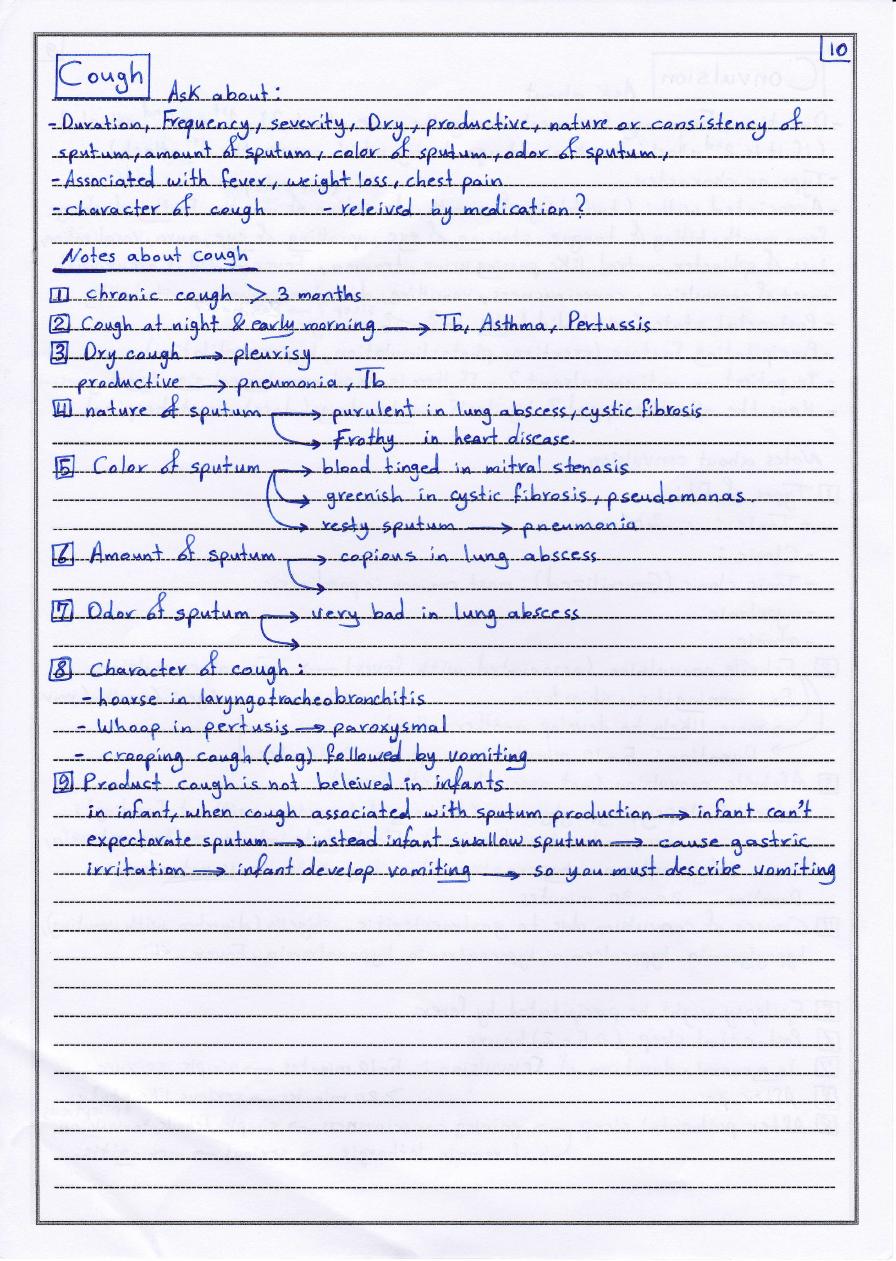 10
Cough
Ask about:
- Duration, Frequency, severity, Dry, productive, nature or consistency of
sputum, amount of sputum, color of sputum, odor of sputum,
- Associated with fever, weight loss, chest pain
- character of cough - releived by medication?
Notes about cough
1 chronic cough > 3 months
2 Cough at night & early morning → Tb, Asthma, Pertussis
3 Dry cough → pleurisy
productive → pneumonia, Tb
4 nature of sputum → purulent in lung abscess, cystic fibrosis
→ Frothy in heart disease.
5 Color of sputum → blood tinged in mitral stenosis
→ greenish in cystic fibrosis, pseudomonas.
→ resty sputum → pneumonia
6 Amount of sputum → copious in lung abscess
→
7 Odor of sputum → very bad in lung abscess
→
8 Character of cough:
- hoarse in laryngotracheobronchitis
- Whoop in pertusis → paroxysmal
- crooping cough (dog) followed by vomiting
9 Product cough is not beleived in infants
in infant, when cough associated with sputum production → infant can't
expectorate sputum → instead infant swallow sputum → cause gastric
irritation → infant develop vomiting → so you must describe vomiting